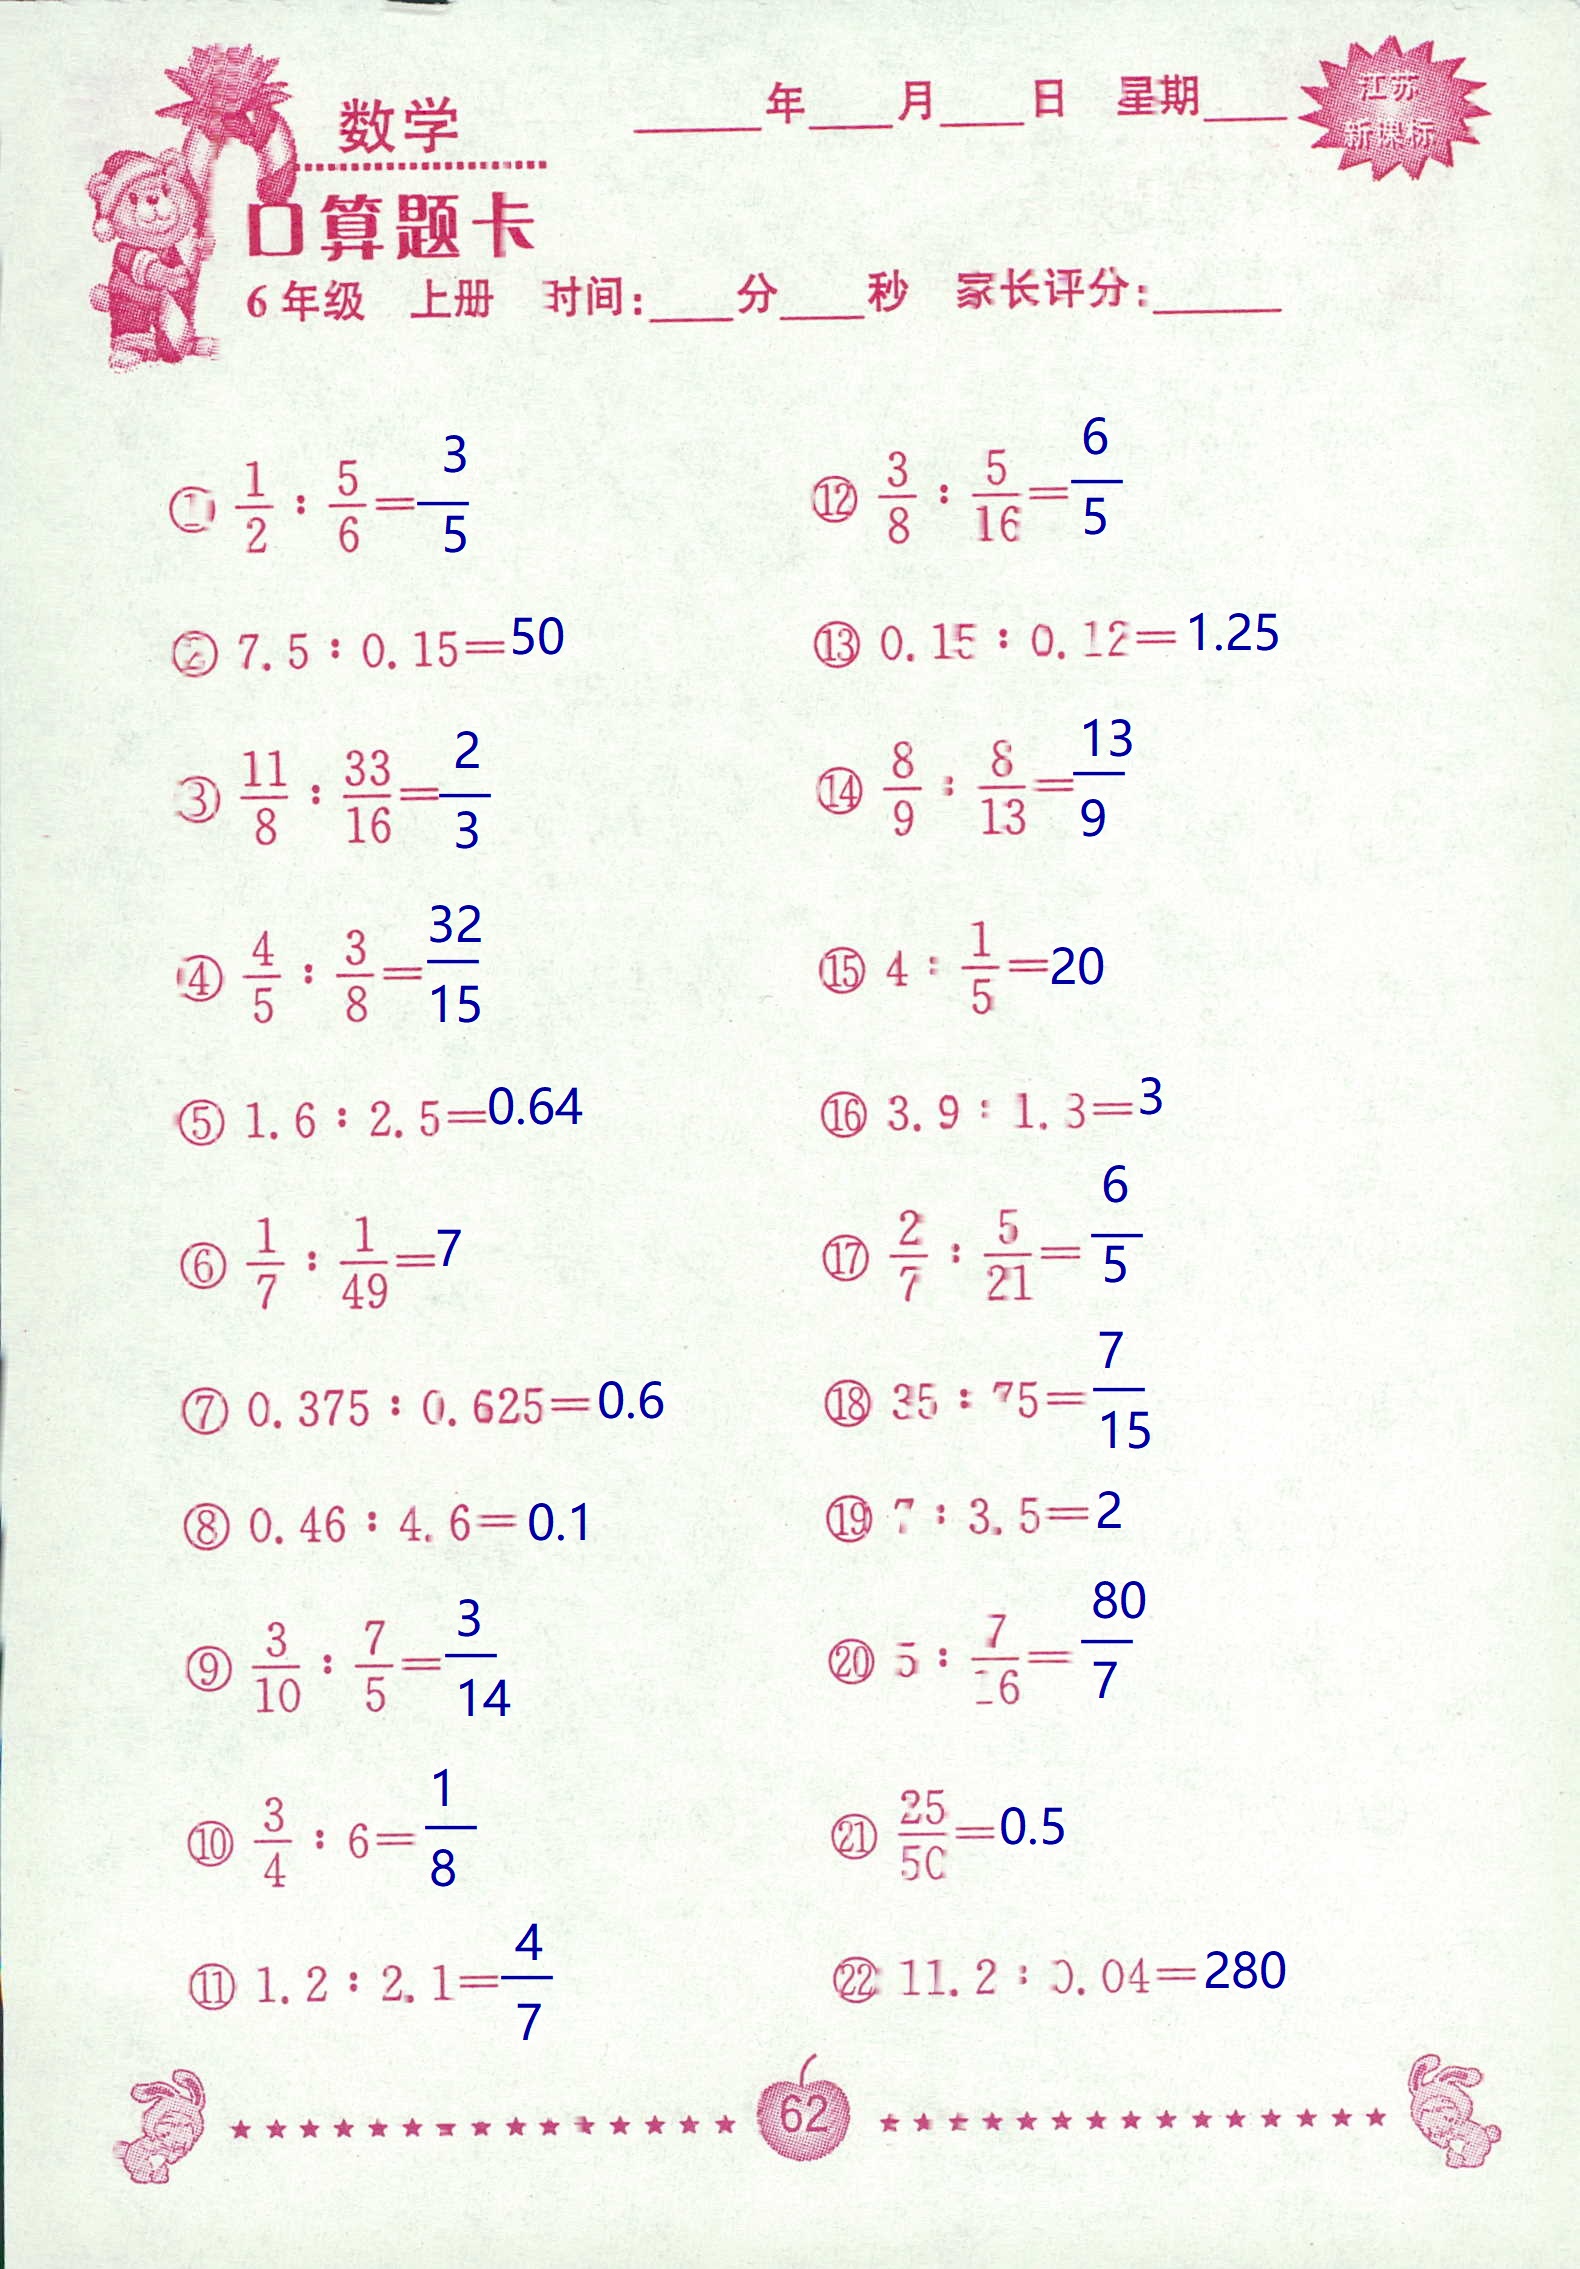 数学
____年____月____日 星期____
江苏
新课标
口算题卡
6年级 上册 时间:____分____秒 家长评分:______
① 1/2 : 5/6 = 3/5
② 7.5 : 0.15 = 50
③ 11/8 : 33/16 = 2/3
④ 4/5 : 3/8 = 32/15
⑤ 1.6 : 2.5 = 0.64
⑥ 1/7 : 1/49 = 7
⑦ 0.375 : 0.625 = 0.6
⑧ 0.46 : 4.6 = 0.1
⑨ 3/10 : 7/5 = 3/14
⑩ 3/4 : 6 = 1/8
⑪ 1.2 : 2.1 = 4/7
⑫ 3/8 : 5/16 = 6/5
⑬ 0.15 : 0.12 = 1.25
⑭ 8/9 : 8/13 = 13/9
⑮ 4 : 1/5 = 20
⑯ 3.9 : 1.3 = 3
⑰ 2/7 : 5/21 = 6/5
⑱ 35 : 75 = 7/15
⑲ 7 : 3.5 = 2
⑳ 5 : 7/16 = 80/7
㉑ 25/50 = 0.5
㉒ 11.2 : 0.04 = 280
62